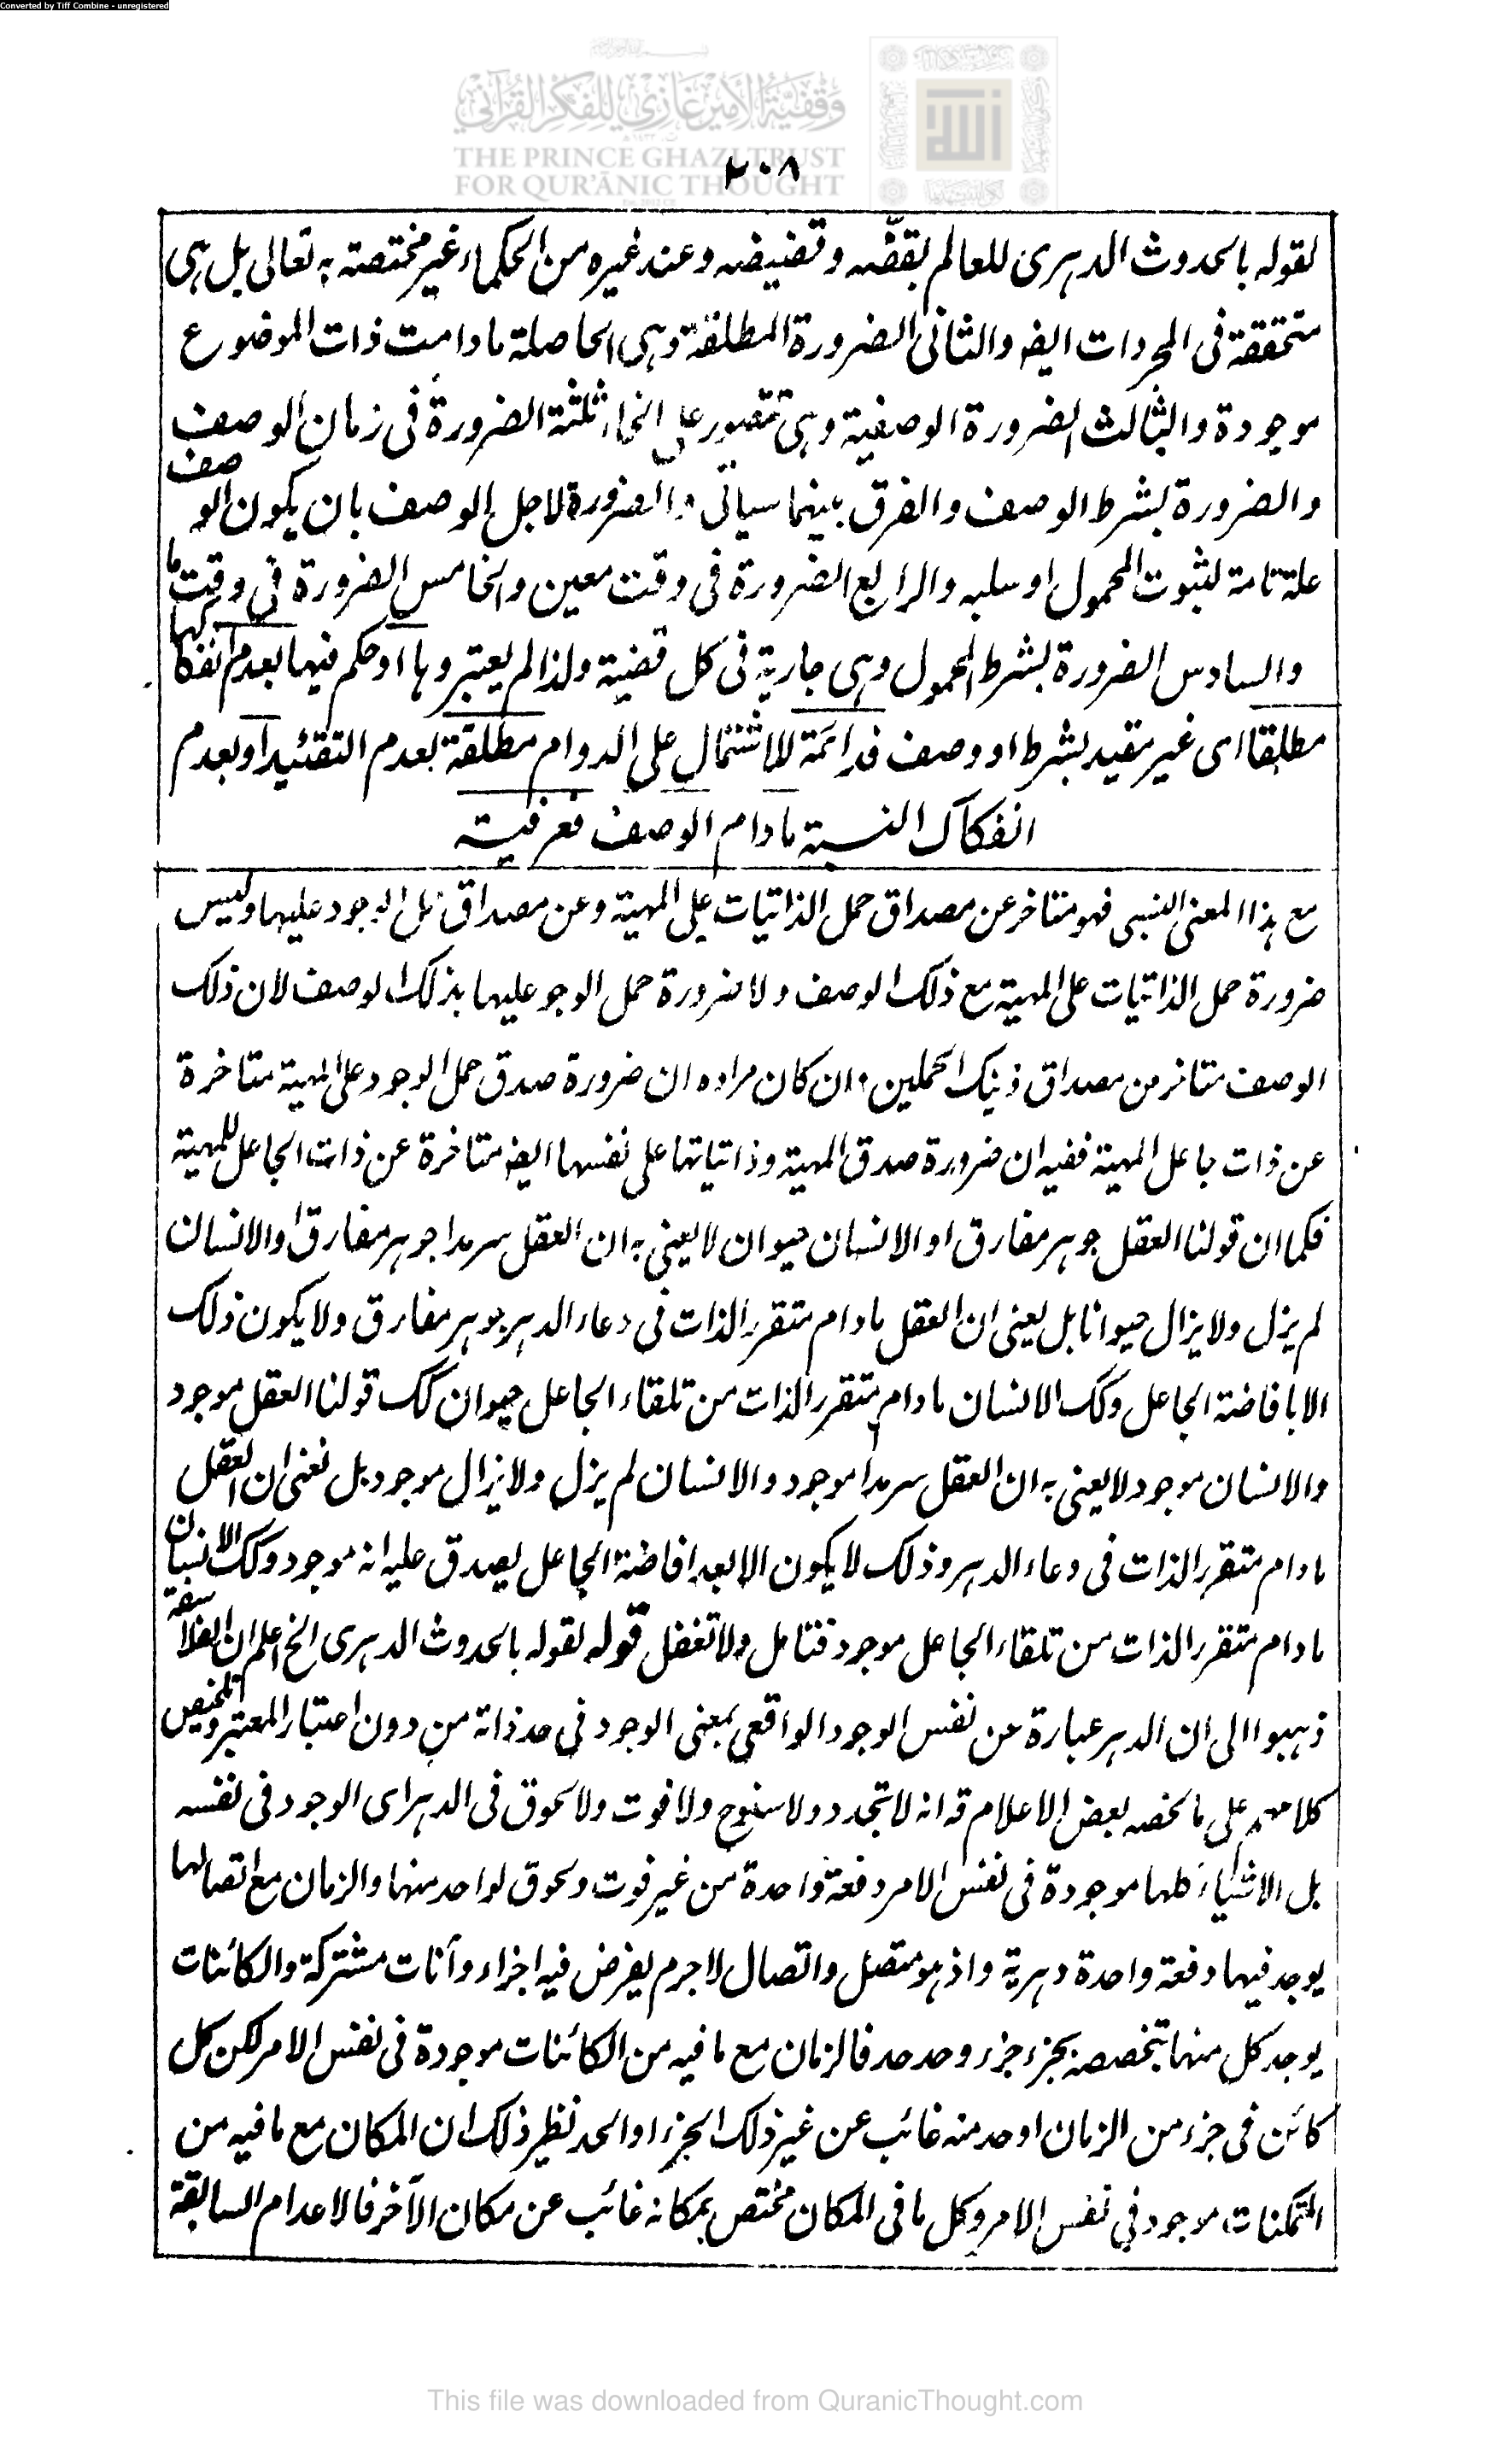 Converted by Tiff Combine - unregistered
وقفية الأمير غازي للفكر القرآني
THE PRINCE GHAZI TRUST
FOR QUR'ĀNIC THOUGHT
٢٠٨
لقوله بالحدوث الدہری للعالم بقضہ وقضیضہ وعند غیره من الحکماء غیر مختصتہ بہ تعالی بل ہی
متحققة فی المجردات ایضا والثانی الضرورة المطلقة وہی الحاصلة ما دامت ذات الموضوع
موجودة والثالث الضرورة الوصفیة وہی تتصور علی انحاء ثلثة الضرورة فی زمان الوصف
والضرورة بشرط الوصف والفرق بینہما سیاتی والضرورة لاجل الوصف بان یکون الوصف
علة تامة لثبوت المحمول او سلبہ والرابع الضرورة فی وقت معین والخامس الضرورة فی وقت ما
والسادس الضرورة بشرط المحمول وہی جاریة فی کل قضیة ولذا لم یعتبروہا او حکم فیہا بعدم انفکاکہا
مطلقا ای غیر مقید بشرط او وصف فدائمة للاشتمال علی الدوام مطلقة بعدم التقئید او بعدم
انفکاک النسبة ما دام الوصف فعرفیة
مع ہذا المعنی النسبی فہو متاخر عن مصداق حمل الذاتیات علی المہیة وعن مصداق حمل الوجود علیہا ولیس
ضرورة حمل الذاتیات علی المہیة مع ذلک الوصف ولا ضرورة حمل الوجو علیہا بذلک الوصف لان ذلک
الوصف متاخر من مصداق ذینک الحملین وان کان مراده ان ضرورة صدق حمل الوجود علی المہیة متاخرة
عن ذات جاعل المہیة ففیہ ان ضرورة صدق المہیة وذاتیاتہا علی نفسہا ایضا متاخرة عن ذات الجاعل للمہیة
فکما ان قولنا العقل جوہر مفارق او الانسان حیوان لا یعنی بہ ان العقل سرمدا جوہر مفارق والانسان
لم یزل ولا یزال حیوانا بل یعنی ان العقل ما دام متقرر الذات فی وعاء الدہر جوہر مفارق ولا یکون ذلک
الا بافاضة الجاعل وکک الانسان ما دام متقرر الذات من تلقاء الجاعل حیوان کک قولنا العقل موجود
والانسان موجود لا یعنی بہ ان العقل سرمدا موجود والانسان لم یزل ولا یزال موجود بل نعنی ان العقل
ما دام متقرر الذات فی وعاء الدہر وذلک لا یکون الا بعد افاضة الجاعل یصدق علیہ انہ موجود وکک الانسان
ما دام متقرر الذات من تلقاء الجاعل موجود فتامل ولا تغفل قولہ لقولہ بالحدوث الدہری الخ اعلم ان الفلاسفة
ذہبوا الی ان الدہر عبارة عن نفس الوجود الواقعی بمعنی الوجود فی حد ذاتہ من دون اعتبار المعتبر وتلخیص
کلامہم علی ما لخصہ بعض الاعلام قد انہ لا تجدد ولا سنوح ولا فوت ولا لحوق فی الدہر ای الوجود فی نفسہ
بل الاشیاء کلہا موجودة فی نفس الامر دفعة واحدة من غیر فوت ولحوق لواحد منہا والزمان مع اتصالہا
یوجد فیہا دفعة واحدة دہریة واذ ہو متصل واتصال لا جرم یفرض فیہ اجزاء وآنات مشترکة والکائنات
یوجد کل منہا بتخصصہ بجزء جزء وحد حد فالزمان مع ما فیہ من الکائنات موجودة فی نفس الامر لکن کل
کائن فی جزء من الزمان او حد منہ غائب عن غیر ذلک الجزء او الحد نظیر ذلک ان المکان مع ما فیہ من
المتمکنات موجود فی نفس الامر وکل ما فی المکان مختص بمکانہ غائب عن مکان الآخر فالاعدام السابقة
This file was downloaded from QuranicThought.com